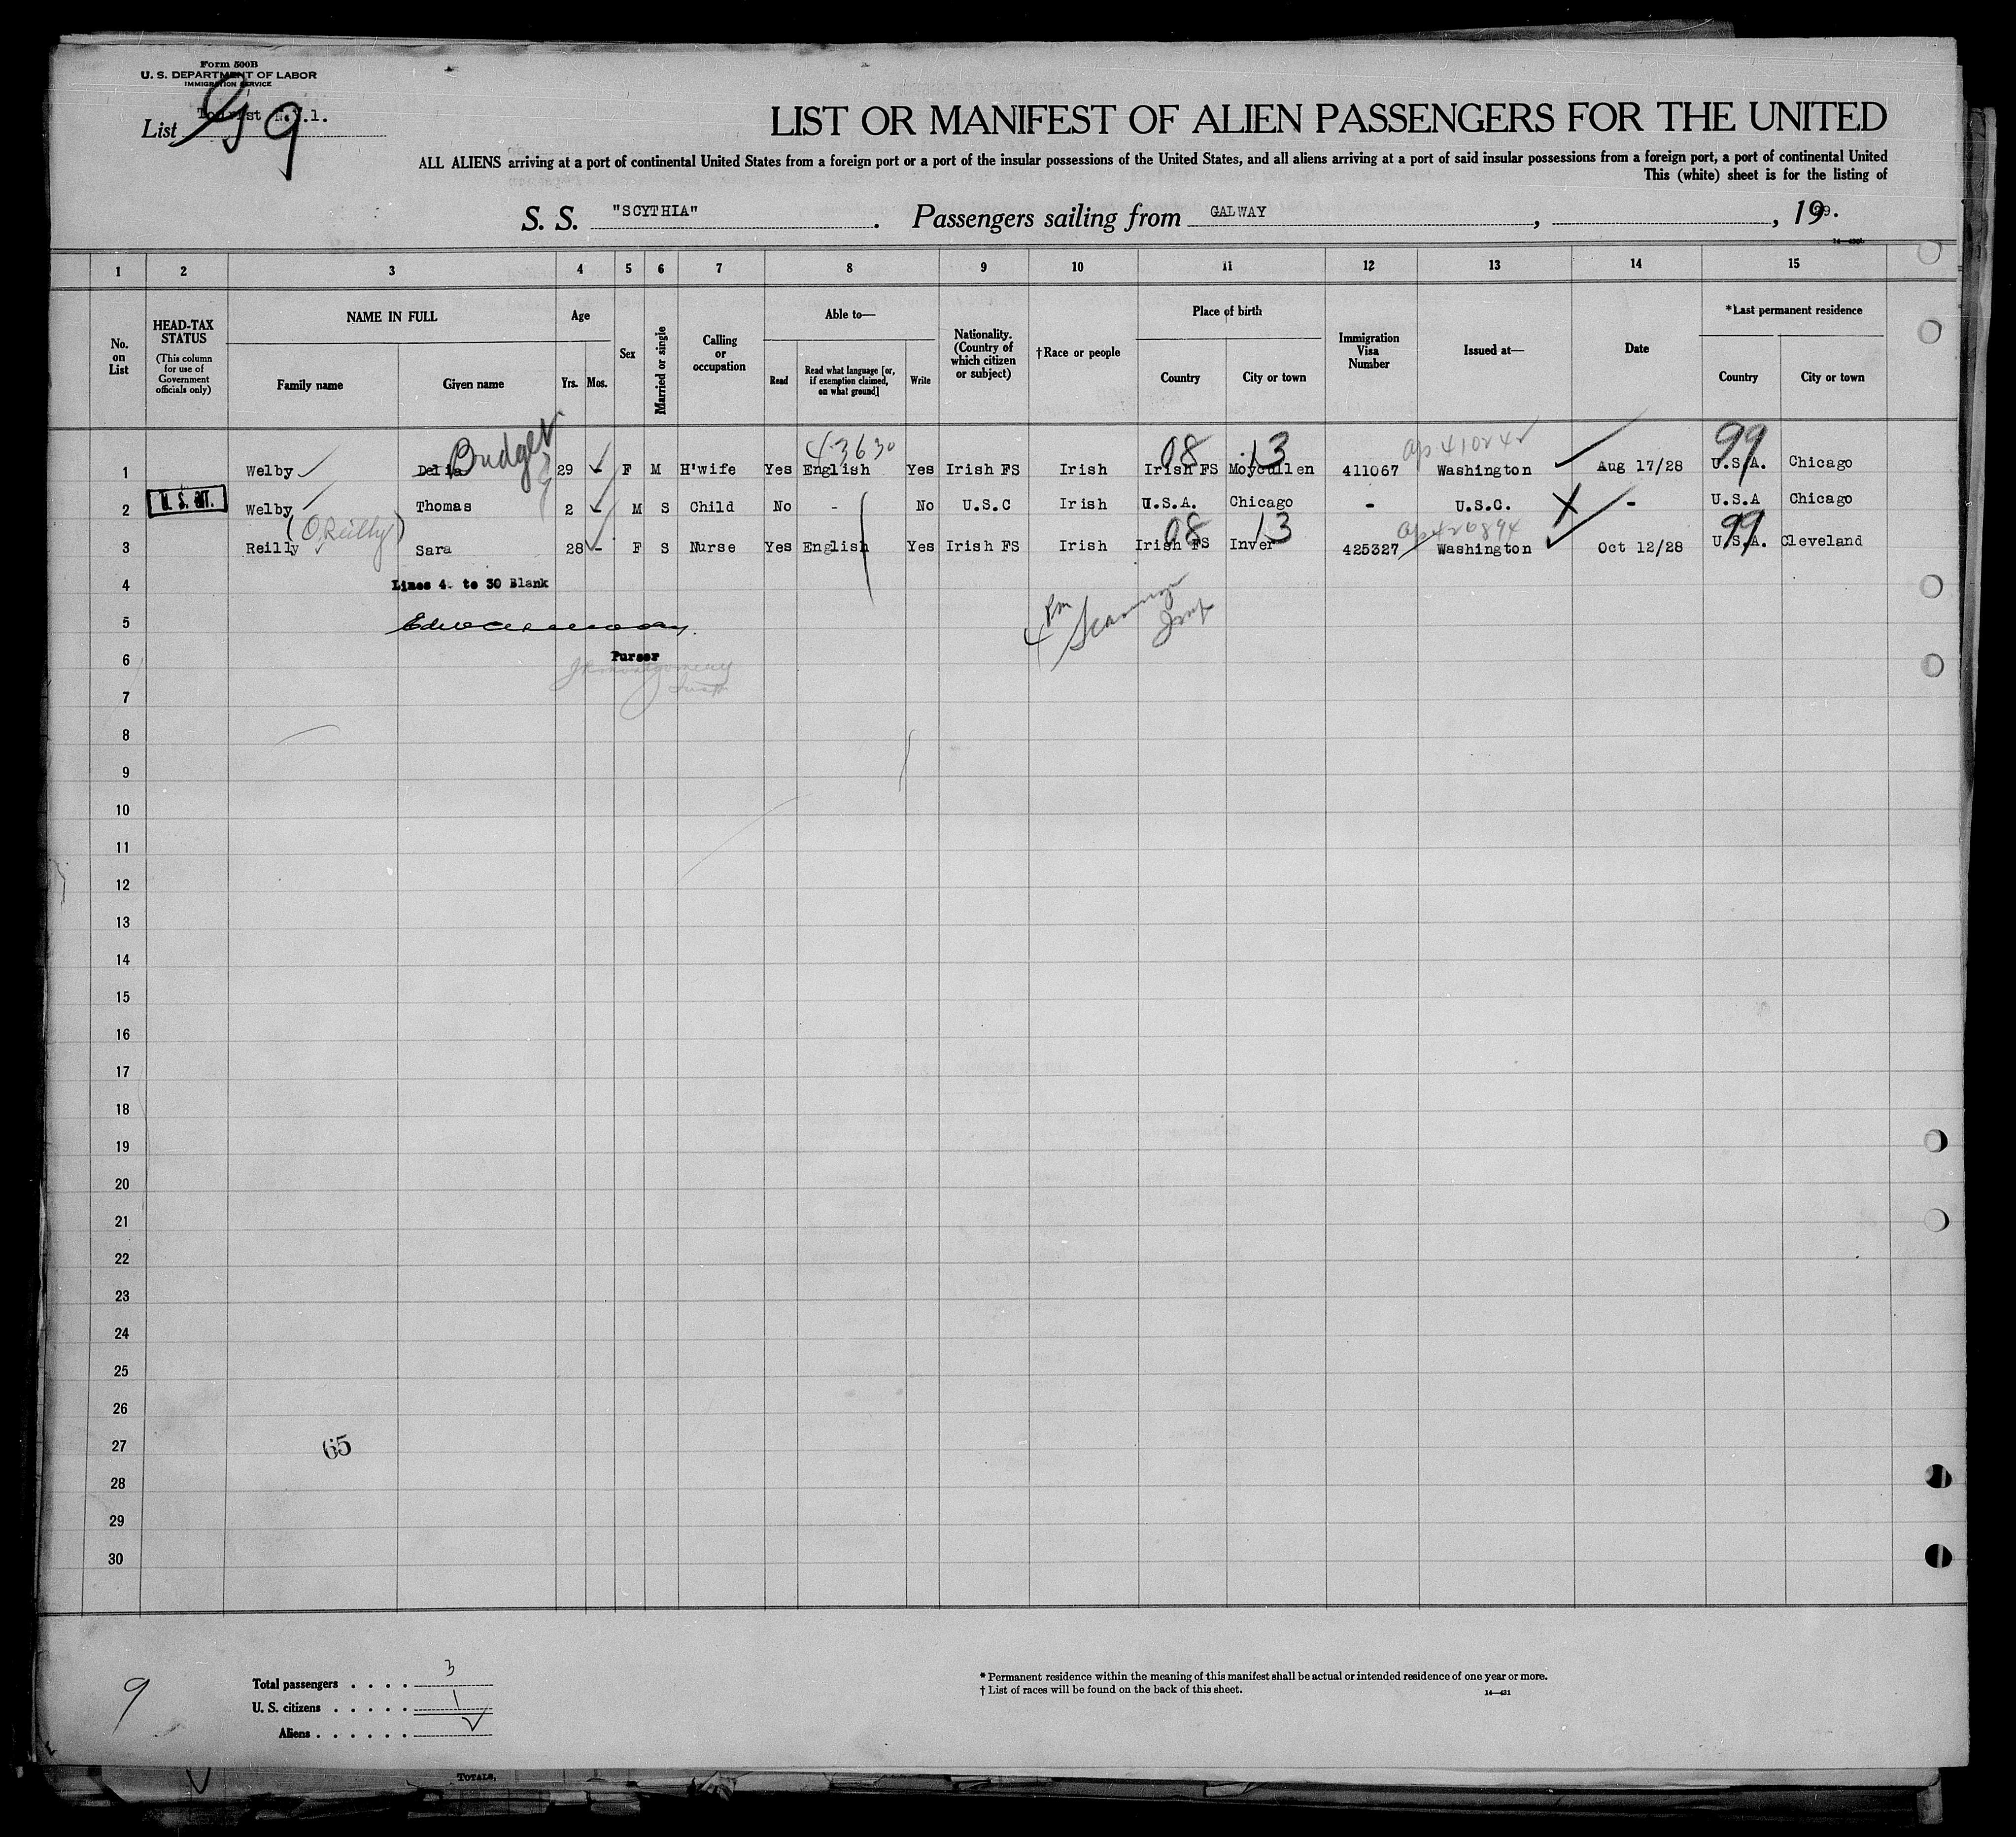 Form 500B
U. S. DEPARTMENT OF LABOR
IMMIGRATION SERVICE
List Tourist 9
LIST OR MANIFEST OF ALIEN PASSENGERS FOR THE UNITED
ALL ALIENS arriving at a port of continental United States from a foreign port or a port of the insular possessions of the United States, and all aliens arriving at a port of said insular possessions from a foreign port, a port of continental United
This (white) sheet is for the listing of
S. S. "SCYTHIA". Passengers sailing from GALWAY, , 1929.
1 2 3 4 5 6 7 8 9 10 11 12 13 14 15
No. on List
HEAD-TAX STATUS (This column for use of Government officials only)
NAME IN FULL
Family name Given name
Age
Yrs. Mos.
Sex
Married or single
Calling or occupation
Able to—
Read Read what language [or, if exemption claimed, on what ground] Write
Nationality. (Country of which citizen or subject)
†Race or people
Place of birth
Country City or town
Immigration Visa Number
Issued at—
Date
*Last permanent residence
Country City or town
Bridget 43630 08 13 99
1 Welby Delia 29 - F M H'wife Yes English Yes Irish FS Irish Irish FS Moycullen 411067 Washington Aug 17/28 U.S.A. Chicago
2 Welby Thomas 2 - M S Child No - No U.S.C Irish U.S.A. Chicago - U.S.C. X - U.S.A Chicago
(O'Reilly) 08 13 99
3 Reilly Sara 28 - F S Nurse Yes English Yes Irish FS Irish Irish FS Inver 425327 Washington Oct 12/28 U.S.A. Cleveland
4 Lines 4. to 30 Blank
5
6 Purser
7
8
9
10
11
12
13
14
15
16
17
18
19
20
21
22
23
24
25
26
27 65
28
29
30
9
Total passengers . . . . 3
U. S. citizens . . . . . 1
Aliens . . . . . .
* Permanent residence within the meaning of this manifest shall be actual or intended residence of one year or more.
† List of races will be found on the back of this sheet.
14—431
TOTALS,